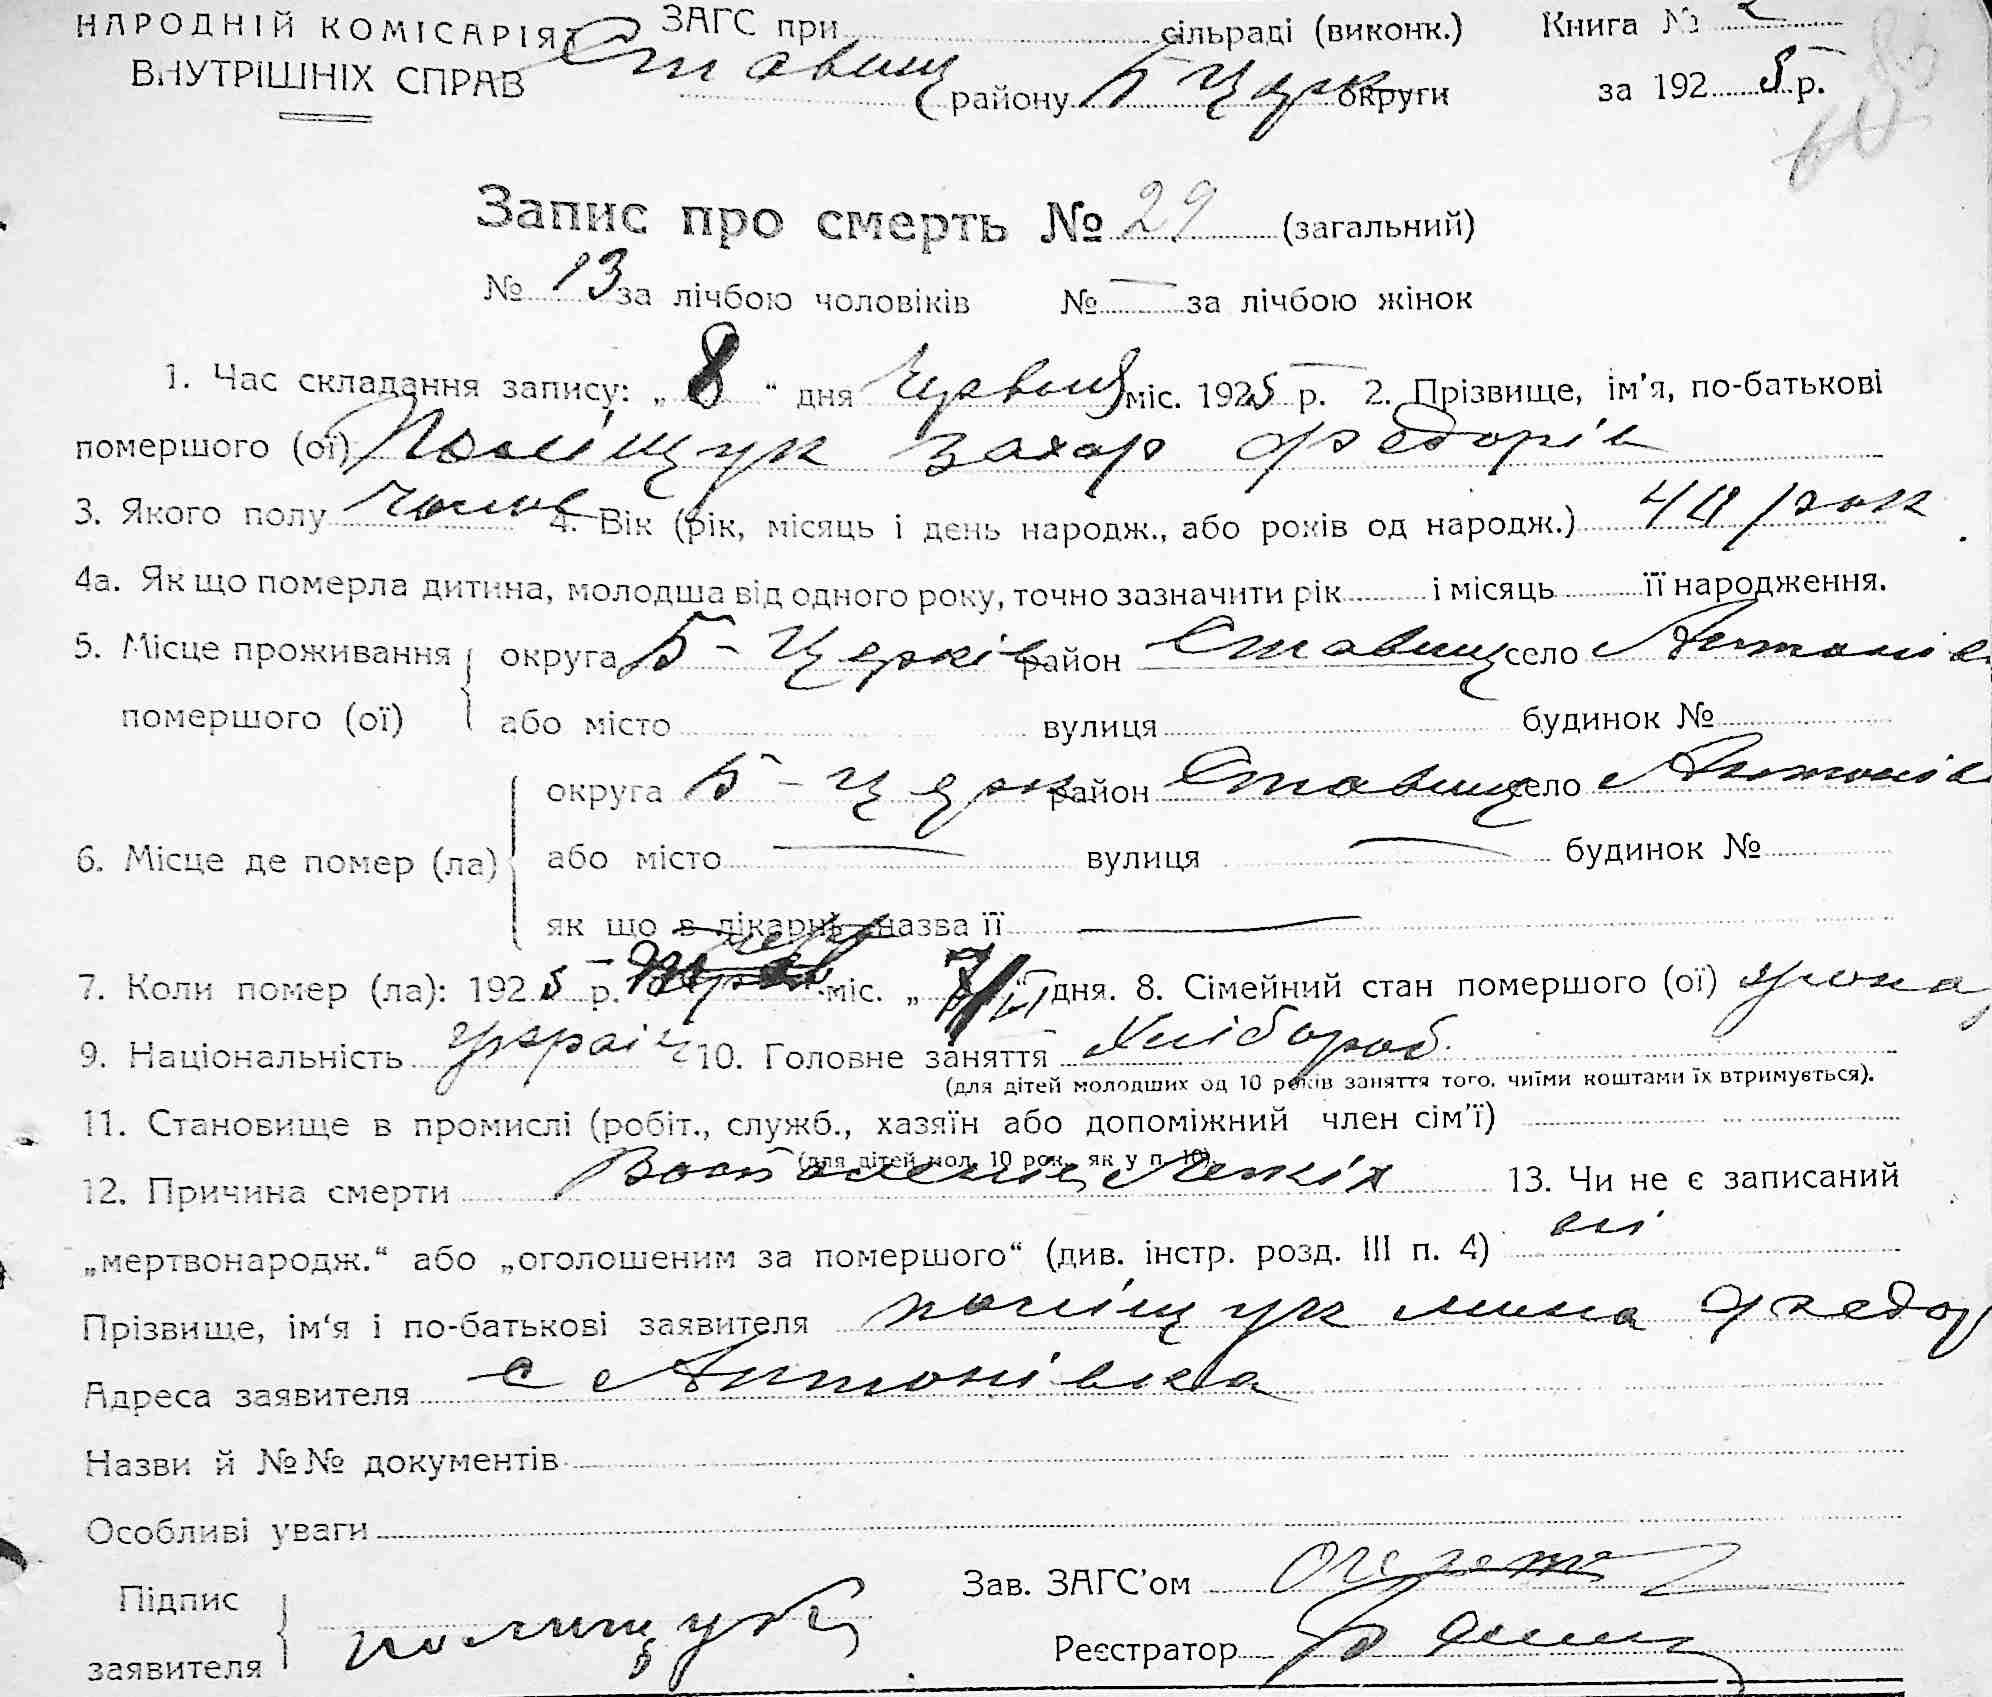 НАРОДНІЙ КОМІСАРІЯТ ЗАГС при сільраді (виконк.) Книга № 2
ВНУТРІШНІХ СПРАВ Ставищ району Б Церк округи за 1925 р.
Запис про смерть № 29 (загальний)
№ 13 за лічбою чоловіків № — за лічбою жінок
1. Час складання запису: „ 8 “ дня Червня міс. 1925 р. 2. Прізвище, ім'я, по-батькові
помершого (ої) Поліщук Захар Федорів
3. Якого полу чолов 4. Вік (рік, місяць і день народж., або років од народж.) рок
4а. Як що померла дитина, молодша від одного року, точно зазначити рік і місяць її народження.
5. Місце проживання округа Б-Церків район Ставищ село Антонів
помершого (ої) або місто вулиця будинок №
округа Б-Церк район Ставищ село Антонів
6. Місце де помер (ла) або місто — вулиця — будинок №
як що в лікарні назва її —
7. Коли помер (ла): 1925 р. черв міс. „ 7 “ дня. 8. Сімейний стан помершого (ої)
9. Національність україн 10. Головне заняття Хлібороб.
(для дітей молодших од 10 років заняття того, чиїми коштами їх втримується).
11. Становище в промислі (робіт., служб., хазяїн або допоміжний член сім'ї)
(для дітей мол. 10 рок. як у п. 10).
12. Причина смерти Воспаление Легкіх 13. Чи не є записаний
„мертвонародж.“ або „оголошеним за помершого“ (див. інстр. розд. III п. 4) ні
Прізвище, ім'я і по-батькові заявителя поліщук мина Федор
Адреса заявителя с Антонівка
Назви й №№ документів
Особливі уваги
Підпис Зав. ЗАГС'ом
заявителя полищук Реєстратор